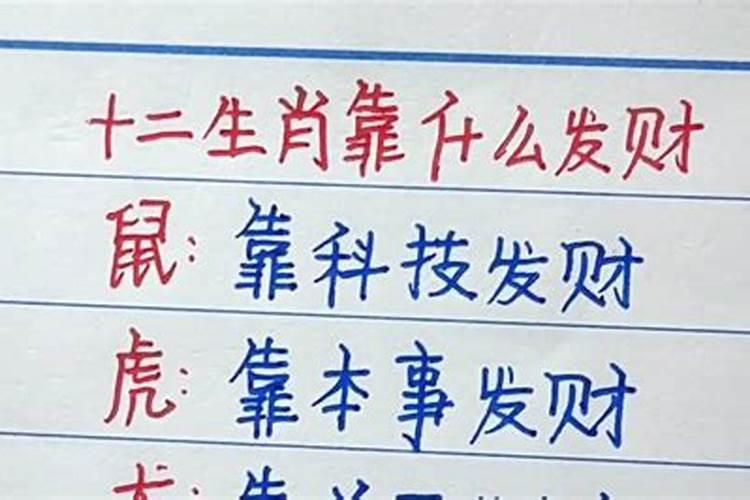 十二生肖靠什么发财
鼠:靠科技发财
虎:靠本事发财